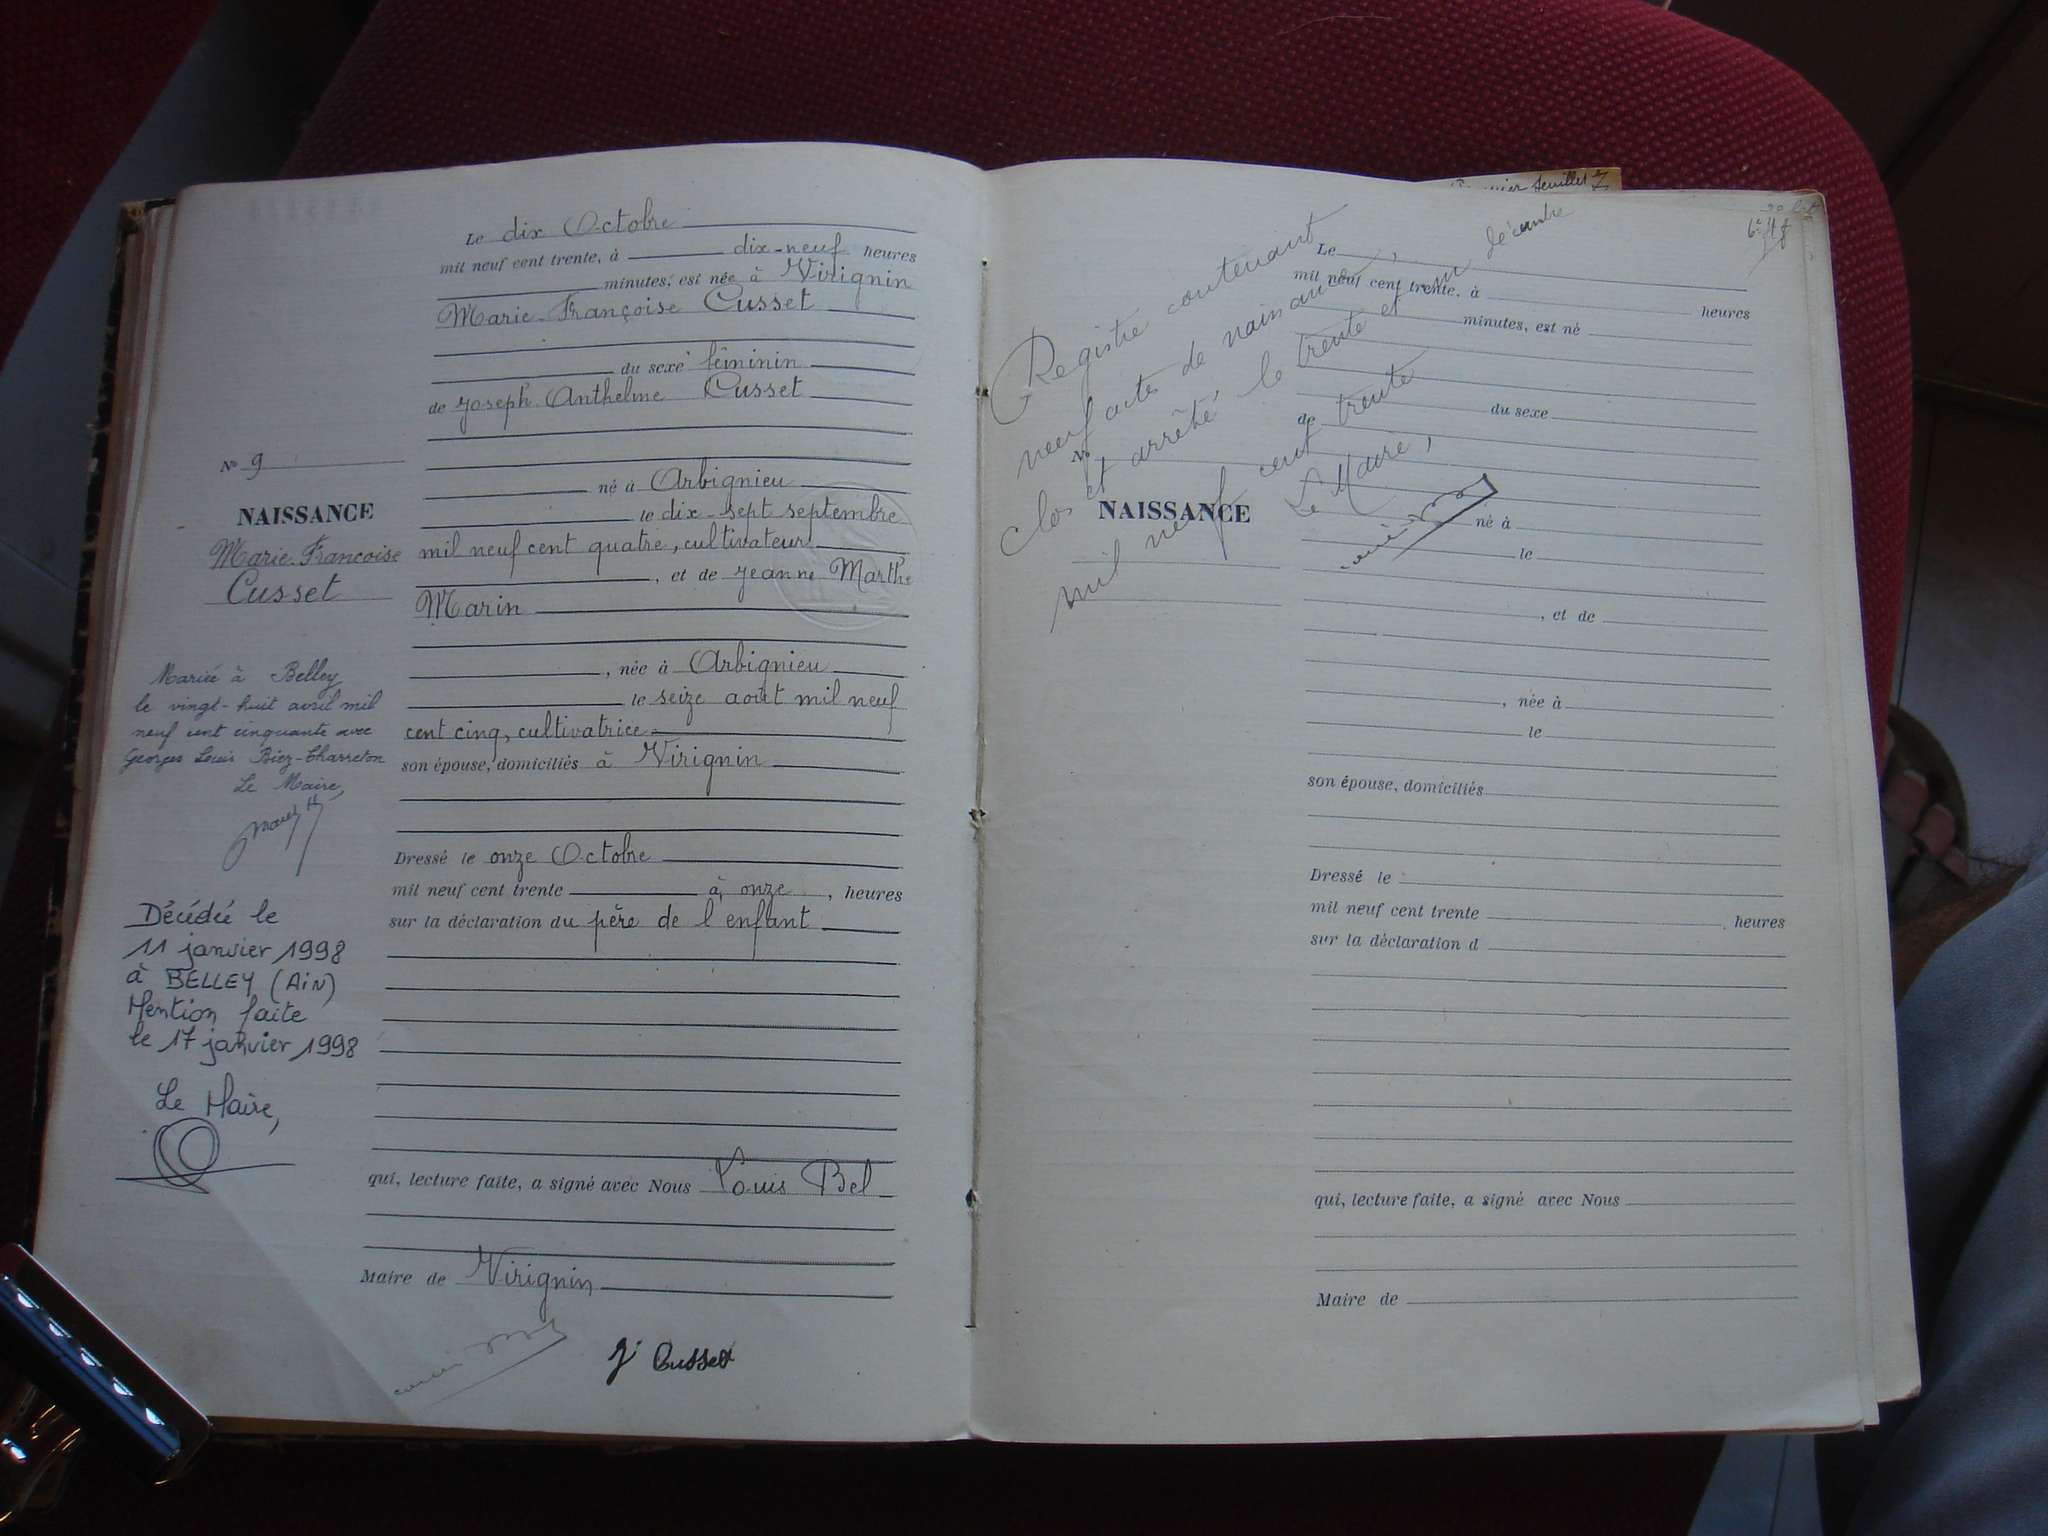 Le dix Octobre
mil neuf cent trente, à dix-neuf heures
minutes, est née à Virignin
Marie-Françoise Cusset
du sexe féminin
de Joseph Anthelme Cusset
né à Arbignieu
le dix-sept septembre
mil neuf cent quatre, cultivateur
, et de Jeanne Marthe
Marin
, née à Arbignieu
le seize août mil neuf
cent cinq, cultivatrice
son épouse, domiciliés à Virignin
Dressé le onze Octobre
mil neuf cent trente à onze, heures
sur la déclaration du père de l'enfant
qui, lecture faite, a signé avec Nous Louis Bel
Maire de Virignin
J. Cusset
N° 9
NAISSANCE
Marie-Françoise
Cusset
Mariée à Belley
le vingt-huit avril mil
neuf cent cinquante avec
Georges Louis Biez-Charreton
Le Maire,
Décédée le
11 janvier 1998
à BELLEY (AiN)
Mention faite
le 17 janvier 1998
Le Maire,
feuillet
Registre contenant
neuf actes de naissance,
clos et arrêté le trente et un décembre
mil neuf cent trente
Le Maire,
N°
NAISSANCE
Le
mil neuf cent trente, à heures
minutes, est né
du sexe
de
né à
le
, et de
, née à
le
son épouse, domiciliés
Dressé le
mil neuf cent trente , heures
sur la déclaration d
qui, lecture faite, a signé avec Nous
Maire de